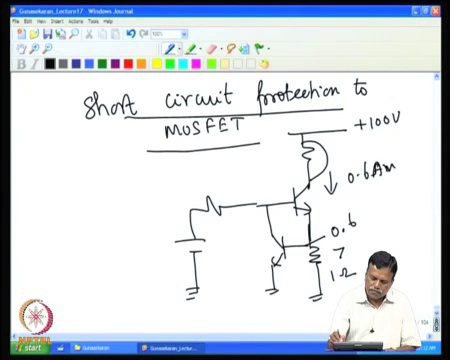 Gunasekaran_Lecture17 - Windows Journal
File Edit View Insert Actions Tools Help
100%
B I
Short circuit protection to
MOSFET
+100V
0.6 Am
0.6
7
1Ω
NPTEL
start
Gunasekaran
Gunasekaran_Lectu...